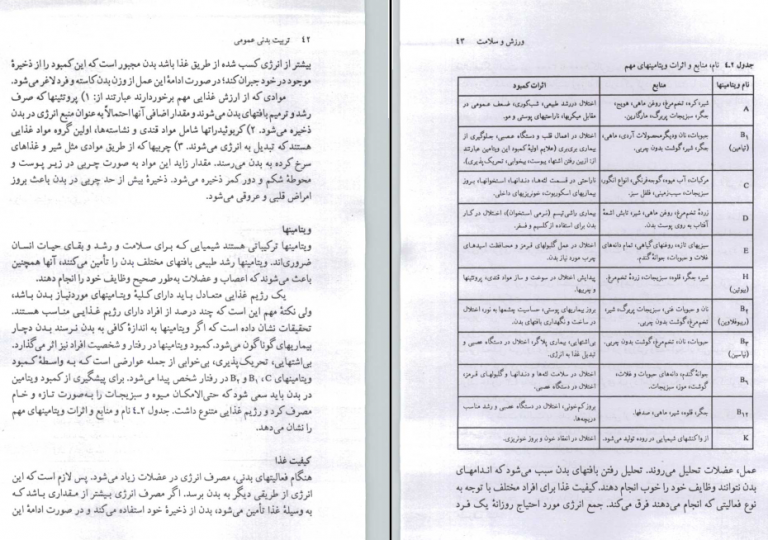 ۴۲ تربیت بدنی عمومی
بیشتر از انرژی کسب شده از طریق غذا باشد بدن مجبور است که این کمبود را از ذخیرهٔ
موجود در خود جبران کند؛ در صورت ادامهٔ این عمل از وزن بدن کاسته و فرد لاغر می‌شود.
موادی که از ارزش غذایی مهم برخوردارند عبارتند از: ۱) پروتئینها که صرف
رشد و ترمیم بافتهای بدن می‌شوند و مقدار اضافی آنها احتمالاً به عنوان منبع انرژی در بدن
ذخیره می‌شود. ۲) کربوئیدراتها شامل مواد قندی و نشاسته‌ها، اولین گروه مواد غذایی
هستند که تبدیل به انرژی می‌شوند. ۳) چربیها که از طریق موادی مثل شیر و غذاهای
سرخ کرده به بدن می‌رسند. مقدار زاید این مواد به صورت چربی در زیر پوست و
محوطهٔ شکم و دور کمر ذخیره می‌شود. ذخیرهٔ بیش از حد چربی در بدن باعث بروز
امراض قلبی و عروقی می‌شود.
ویتامینها
ویتامینها ترکیباتی هستند شیمیایی که برای سلامت و رشد و بقای حیات انسان
ضروری‌اند. ویتامینها رشد طبیعی بافتهای مختلف بدن را تأمین می‌کنند، آنها همچنین
باعث می‌شوند که اعصاب و عضلات به‌طور صحیح وظایف خود را انجام دهند.
یک رژیم غذایی متعادل باید دارای کلیهٔ ویتامینهای موردنیاز بدن باشد،
ولی نکتهٔ مهم این است که چند درصد از افراد دارای رژیم غذایی مناسب هستند.
تحقیقات نشان داده است که اگر ویتامینها به اندازهٔ کافی به بدن نرسند بدن دچار
بیماریهای گوناگون می‌شود. کمبود ویتامینها در رفتار و شخصیت افراد نیز اثر می‌گذارد.
بی‌اشتهایی، تحریک‌پذیری، بی‌خوابی از جمله عوارضی است که به واسطهٔ کمبود
ویتامینهای C، B₆ و B₁ در رفتار شخص پیدا می‌شود. برای پیشگیری از کمبود ویتامین
در بدن باید سعی شود که حتی‌الامکان میوه و سبزیجات را به‌صورت تازه و خام
مصرف کرد و رژیم غذایی متنوع داشت. جدول ۴ـ۲ نام و منابع و اثرات ویتامینهای مهم
را نشان می‌دهد.
کیفیت غذا
هنگام فعالیتهای بدنی، مصرف انرژی در عضلات زیاد می‌شود. پس لازم است که این
انرژی از طریقی دیگر به بدن برسد. اگر مصرف انرژی بیشتر از مقداری باشد که
به وسیلهٔ غذا تأمین می‌شود، بدن از ذخیرهٔ خود استفاده می‌کند و در صورت ادامهٔ این
ورزش و سلامت ۴۳
جدول ۴ـ۲ نام، منابع و اثرات ویتامینهای مهم
نام ویتامینها منابع اثرات کمبود
A شیر، کره، تخم‌مرغ، روغن ماهی، هویج، جگر، سبزیجات پربرگ، مارگارین. اختلال در رشد طبیعی، شبکوری، ضعف عمومی در مقابل میکربها، ناراحتیهای پوستی و مو.
B₁ (تیامین) حبوبات، نان و دیگر محصولات آردی، ماهی، جگر، شیر، گوشت بدون چربی. اختلال در اعمال قلب و دستگاه عصبی، جلوگیری از بیماری بری‌بری (علایم اولیهٔ کمبود این ویتامین عبارتند از: ازبین رفتن اشتها، یبوست، بیخوابی، تحریک‌پذیری).
C مرکبات، آب میوه، گوجه‌فرنگی، انواع انگور، سبزیجات، سیب‌زمینی، فلفل سبز. ناراحتی در قسمت لثه‌ها، دندانها، استخوانها، بروز بیماریهای اسکوربوت، خونریزیهای داخلی.
D زردهٔ تخم‌مرغ، روغن ماهی، شیر، تابش اشعهٔ آفتاب به روی پوست بدن. بیماری راشی‌تیسم (نرمی استخوان)، اختلال در کار بدن برای استفاده از کلسیم و فسفر.
E سبزیهای تازه، روغنهای گیاهی، تمام دانه‌های غلات و حبوبات، جوانهٔ گندم. اختلال در عمل گلبولهای قرمز و محافظت اسیدهای چرب مورد نیاز بدن.
H (بیوتین) شیر، جگر، قلوه، سبزیجات، زردهٔ تخم‌مرغ. پیدایش اختلال در سوخت و ساز مواد قندی، پروتئینها و چربیها.
B₂ (ریبوفلاوین) نان و حبوبات غنی، سبزیجات پربرگ، شیر، تخم‌مرغ، گوشت بدون چربی. بروز بیماریهای پوستی، حساسیت چشمها به نور، اختلال در ساخت و نگهداری بافتهای بدن.
B₃ (نیاسین) حبوبات، نان، تخم‌مرغ، گوشت بدون چربی. بی‌اشتهایی، بیماری پلاگر، اختلال در دستگاه عصبی و تبدیل غذا به انرژی.
B₆ جوانهٔ گندم، دانه‌های حبوبات و غلات، گوشت، موز، سبزیجات. اختلال در سلامت لثه‌ها و دندانها و گلبولهای قرمز، اختلال در دستگاه عصبی.
B₁₂ جگر، قلوه، شیر، ماهی، صدفها. بروز کم‌خونی، اختلال در دستگاه عصبی و رشد مناسب در بچه‌ها.
K از واکنشهای شیمیایی در روده تولید می‌شود. اختلال در انعقاد خون و بروز خونریزی.
عمل، عضلات تحلیل می‌روند. تحلیل رفتن بافتهای بدن سبب می‌شود که اندامهای
بدن نتوانند وظایف خود را خوب انجام دهند. کیفیت غذا برای افراد مختلف با توجه به
نوع فعالیتی که انجام می‌دهند فرق می‌کند. جمع انرژی مورد احتیاج روزانهٔ یک فرد